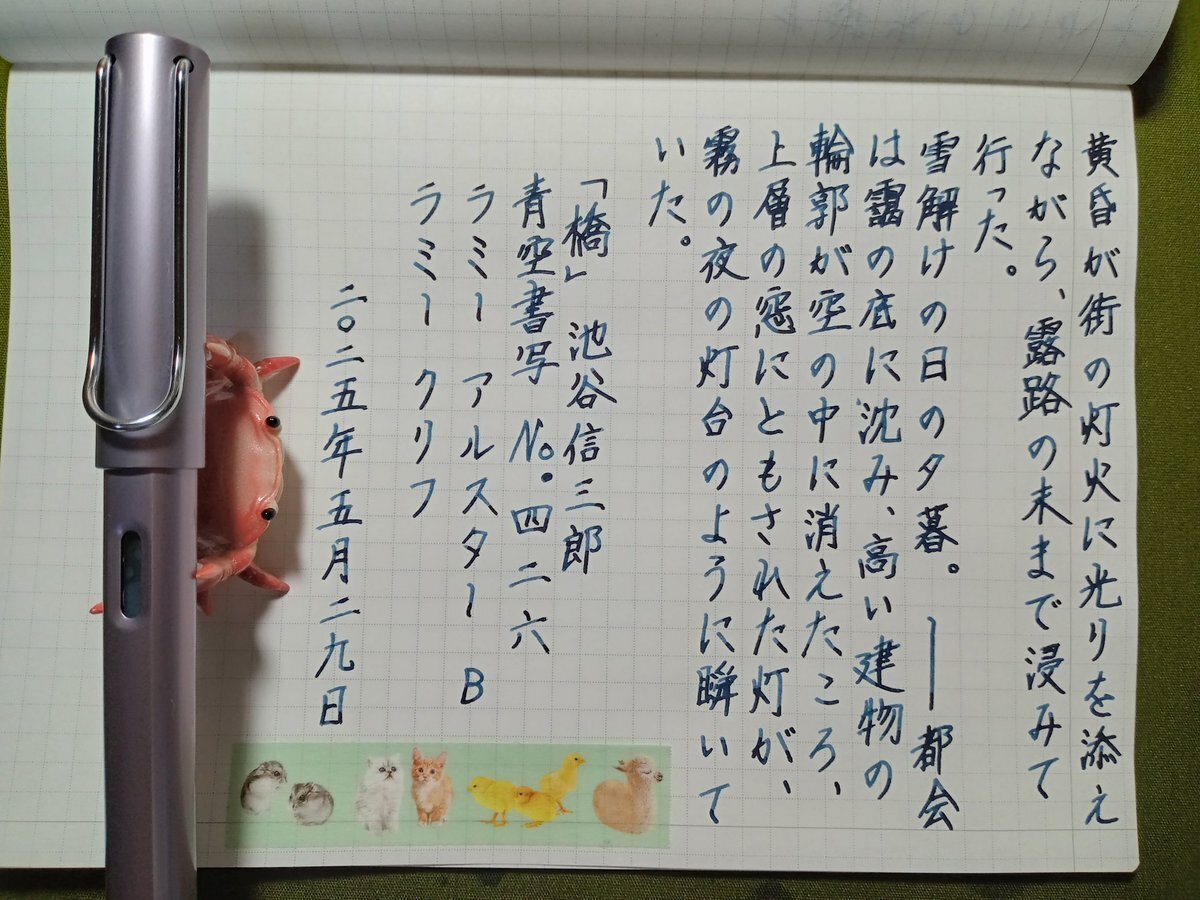 黄昏が街の灯火に光りを添え
ながら、露路の末まで浸みて
行った。
雪解けの日の夕暮。――都会
は靄の底に沈み、高い建物の
輪郭が空の中に消えたころ、
上層の窓にともされた灯が、
霧の夜の灯台のように瞬いて
いた。
「橋」 池谷信三郎
青空書写 No.四二六
ラミー アルスター B
ラミー クリフ
二〇二五年五月二九日